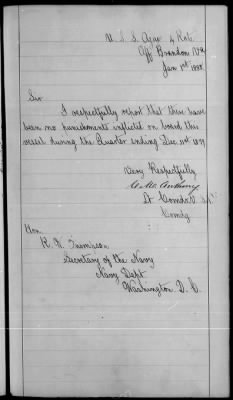 U. S. S. Ajax 4 Rate
Off Brandon Va
Jan 1st 1880.
Sir
I respectfully report that there have
been no punishments inflicted on board this
vessel during the Quarter ending Dec 31st 1879
Very Respectfully
Lt Comdr U. S. N.
Comdg
Hon.
R. W. Thompson
Secretary of the Navy
Navy Dept
Washington D. C.